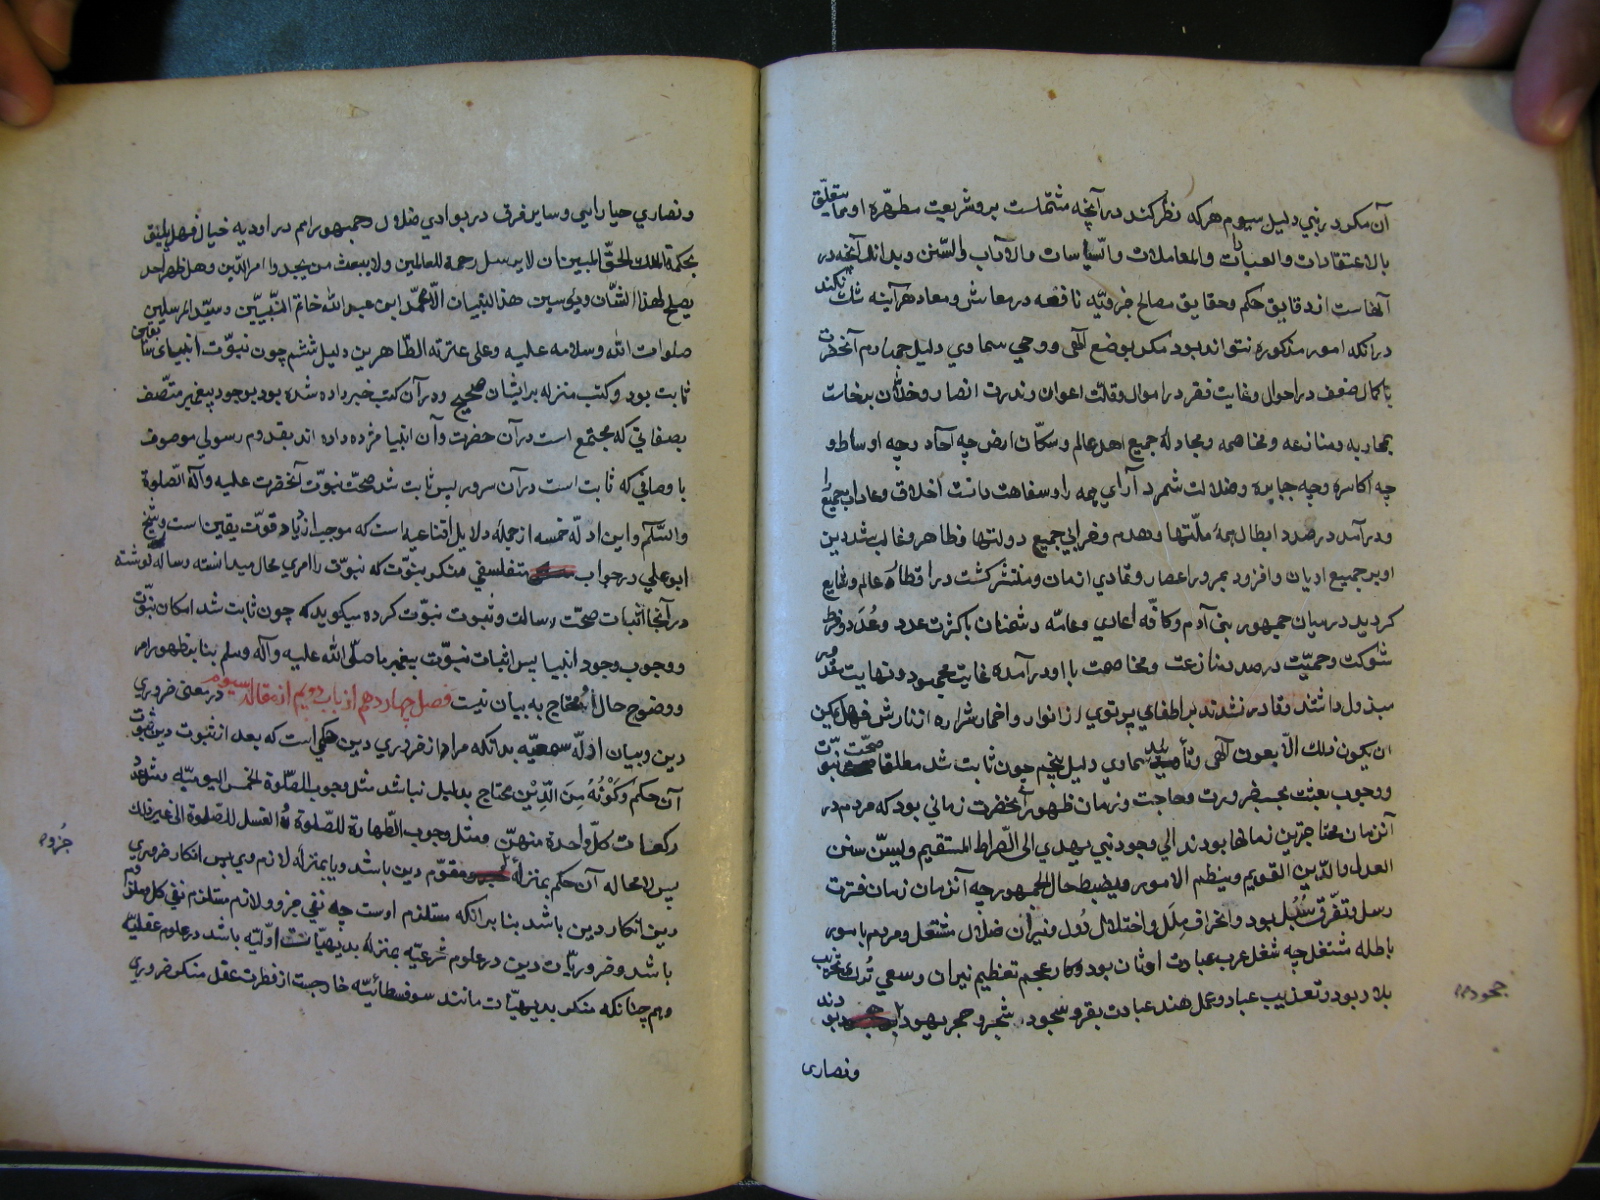 آن مکر در نبی دلیل سیوم هر که نظر کند در آنچه مشتملست برو شریعت مطهّره او بما یتعلّق
بالاعتقادات والعبادات والمعاملات والسّیاسات والآداب والسّنن وبداند آنچه در
آنهاست از دقایق حکم وحقایق مصالح جزویّه نافعه در معاش ومعاد هر آینه شک نکند
در آنکه امور مذکوره نتواند بود مکر بوضع آلهی ووحی سماوی دلیل چهارم آنحضرت
با کمال ضعف در احوال وغایت فقر در اموال وقلّت اعوان وندرت انصار وخلّان برخاست
بمحاربه ومنازعه ومخاصمه ومجادلهٔ جمیع اهل عالم وسکّان ارض چه آحاد وچه اوساط و
چه اکاسره وچه جبابره وضلالت شمرد آرای همه را وسفاهت دانست اخلاق وعادات جمیع را
ودر آمد در صدد ابطال همهٔ ملّتها وهدم وخرابی جمیع دولتها وظاهر وغالب شد دین
او بر جمیع ادیان وافزود بمرور اعصار وتمادی ازمان ومنتشر کشت در اقطار عالم وشایع
کردید در میان جمهور بنی آدم وکافّه اعادی وعامّه دشمنان با کثرت عدد وعُدَد وفرط
شوکت وحمیّت در صدد منازعت ومخاصمت با او در آمده غایت مجهود ونهایت مقدور
مبذول داشتند وقادر نشدند بر اطفای پرتوی از انوار واخماد شراره از نارش فهل یمکن
ان یکون ذلک الّا بعون آلهی وتأیید سماوی دلیل پنجم چون ثابت شد مطلقا صحّت نبوّت
ووجوب بعثت بحسب ضرورت وحاجت وزمان ظهور آنحضرت زمانی بود که مردم در
آنزمان محتاجترین زمانها بودند الی وجود نبی یهدی الی الصّراط المستقیم ویسنّ سنن
العدل والدّین القویم وینظم الامور ویضبط حال الجمهور چه آنزمان زمان فترت
رسل وتفرّق سُبُل بود وانحراف مِلَل واختلال دُوَل ونیران ضلال مشتعل ومردم بامور
باطله مشتغل چه شغل عرب عبادت اوثان بود وکار عجم تعظیم نیران وسعی تُرک تخریب
بلاد بود وتعذیب عباد وعمل هند عبادت بقر وسجود شجر وحجر یهود بودند
ونصاری
جحود
ونصاری حیارایی وسایر فرق در بوادی ضلال وجمهور امم در اودیه خیال فهل یلیق
بحکمة الملک الحقّ المبین ان لا یرسل رحمة للعالمین ولا یبعث من یجدد امر الدّین وهل ظهر احد
یصلح لهذا الشّان ویؤسس هذا البنیان الّا محمّد ابن عبد الله خاتم النّبییّن وسیّد المرسلین
صلوات الله وسلامه علیه وعلی عترته الطّاهرین دلیل ششم چون نبوّت انبیای سابقین
ثابت بود وکتب منزله بر ایشان صحیح ودر آن کتب خبر داده شده بود بوجود پیغمبر متّصف
بصفاتی که مجتمع است در آن حضرت وآن انبیا مژده داده اند بقدوم رسولی موصوف
با وصافی که ثابت است در آن سرور پس ثابت شد صحّت نبوّت آنحضرت علیه وآله الصّلوة
والسّلام واین ادلّه خمسه از جمله دلایل اقناعیه است که موجب ازدیاد قوّت یقین است وشیخ
ابو علی در جواب متفلسفی منکر نبوّت که نبوّت را امری محال میدانسته رساله نوشته
در آنجا اثبات صحّت رسالت وثبوت نبوّت کرده میکوید که چون ثابت شد امکان نبوّت
ووجوب وجود انبیا پس اثبات نبوّت پیغمبر ما صلّی الله علیه وآله وسلم بنا بر ظهور امر
ووضوح حال او محتاج به بیان نیست فصل چهاردهم از باب دویم از مقاله سیوم در معنی ضروری
دین وبیان ادلّه سمعیّه بدانکه مراد از ضروری دین حکمی است که بعد از ثبوت دین ثبوت
آن حکم وَکَوْنُهُ مِنَ الدِّیْنِ محتاج بدلیل نباشد مثل وجوب الصّلوة الخمس الیومیّه وعدد
رکعات کلّ واحدة منهنّ ومثل وجوب الطّهارة للصّلوة والغسل للصّلوة الی غیر ذلک
پس لا محاله آن حکم بمنزلهٔ مقوّم دین باشد ویا بمنزلهٔ لازم وی پس انکار ضروری
دین انکار دین باشد بنا بر آنکه مستلزم اوست چه نفی جزو ولازم مستلزم نفی کل وملزوم
باشد وضروریّات دین در علوم شرعیّه بمنزلهٔ بدیهیّات اوّلیّه باشد در علوم عقلیّه
وهم چنانکه منکر بدیهیّات مانند سوفسطائیّه خارجست از فطرت عقل منکر ضروری
جُزو